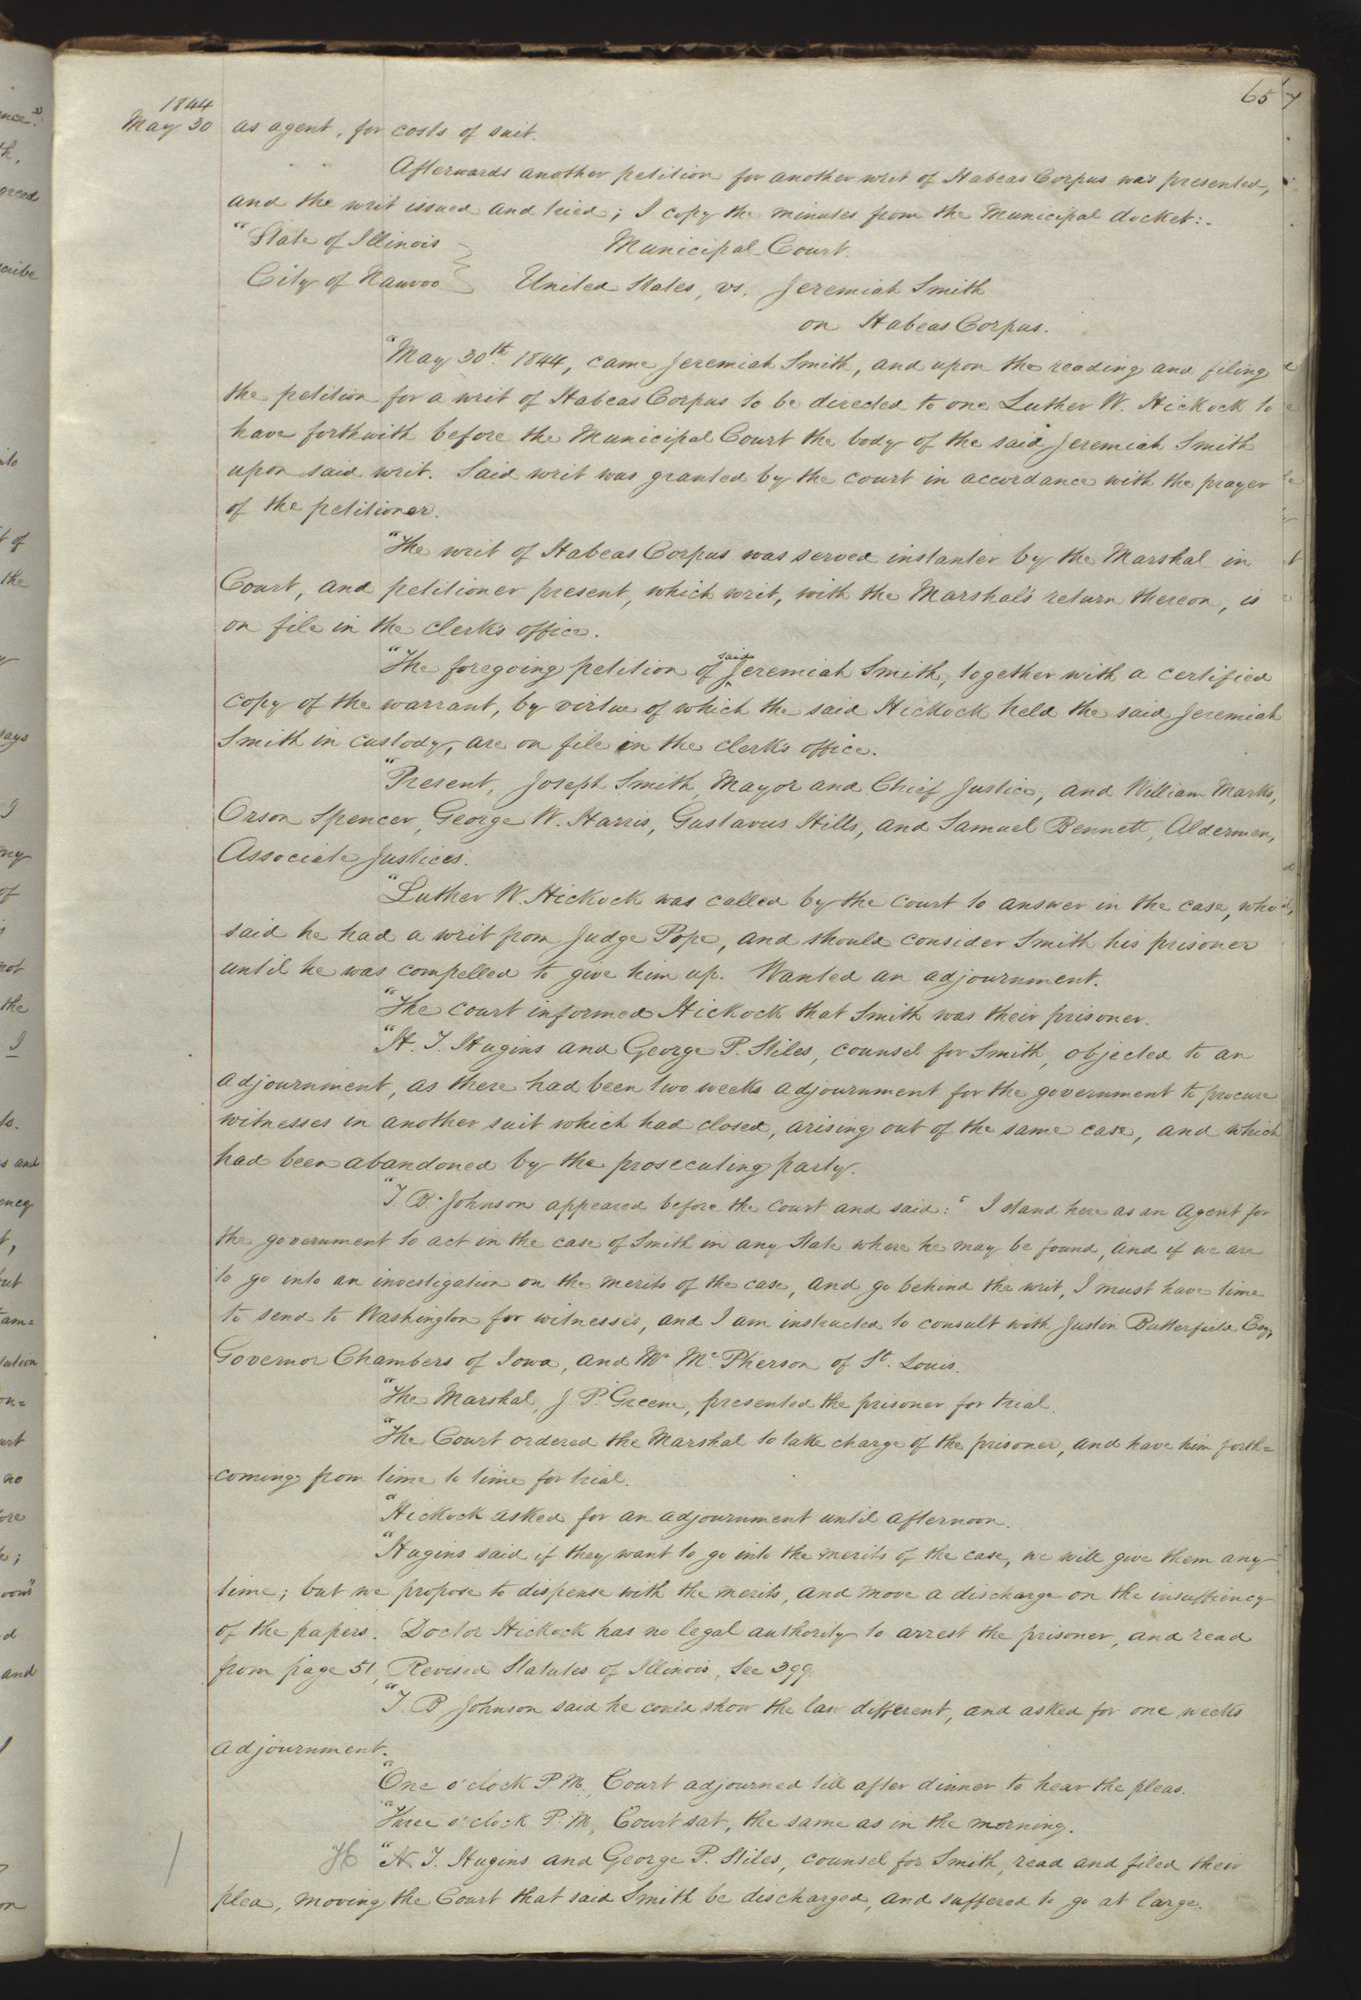 65
1844
May 30 as agent, for costs of suit.
Afterwards another petition for another writ of Habeas Corpus was presented,
and the writ issued and tried; I copy the minutes from the Municipal docket:-
"State of Illinois } Municipal Court.
City of Nauvoo } United States, vs. Jeremiah Smith
on Habeas Corpus.
"May 30th. 1844, came Jeremiah Smith, and upon the reading and filing
the petition for a writ of Habeas Corpus to be directed to one Luther W. Hickock to
have forthwith before the Municipal Court the body of the said Jeremiah Smith
upon said writ. Said writ was granted by the court in accordance with the prayer
of the petitioner.
"The writ of Habeas Corpus was served instanter by the Marshal in
Court, and petitioner present, which writ, with the Marshal's return thereon, is
on file in the clerk's office.
"The foregoing petition of said Jeremiah Smith, together with a certified
copy of the warrant, by virtue of which the said Hickock held the said Jeremiah
Smith in custody, are on file in the clerk's office.
"Present, Joseph Smith, Mayor and Chief Justice, and William Marks,
Orson Spencer, George W. Harris, Gustavus Hills, and Samuel Bennett, Aldermen,
Associate Justices.
"Luther W. Hickock was called by the court to answer in the case, who
said he had a writ from Judge Pope, and should consider Smith his prisoner
until he was compelled to give him up. Wanted an adjournment.
"The court informed Hickock that Smith was their prisoner.
"H. T. Hugins and George P. Stiles, counsel for Smith, objected to an
adjournment, as there had been two weeks adjournment for the government to procure
witnesses in another suit which had closed, arising out of the same case, and which
had been abandoned by the prosecuting party.
"T. B. Johnson appeared before the Court and said: "I stand here as an Agent for
the government to act in the case of Smith in any State where he may be found, and if we are
to go into an investigation on the merits of the case, and go behind the writ, I must have time
to send to Washington for witnesses, and I am instructed to consult with Justin Butterfield Esqr
Governor Chambers of Iowa, and Mr. Mc.Pherson of St. Louis.
"The Marshal, J. P. Greene, presented the prisoner for trial.
"The Court ordered the Marshal to take charge of the prisoner, and have him forth=
coming from time to time for trial.
"Hickock asked for an adjournment until afternoon.
"Hugins said if they want to go into the merits of the case, we will give them any
time; but we propose to dispense with the merits, and move a discharge on the insufficiency
of the papers. Doctor Hickock has no legal authority to arrest the prisoner, and read
from page 51, Revised Statutes of Illinois, Sec 399.
"T. B. Johnson said he could show the law different, and asked for one weeks
adjournment.
"One o'clock P.M., Court adjourned till after dinner to hear the pleas.
"Three o'clock P.M., Court sat, the same as in the morning.
H "H. T. Hugins and George P. Stiles, counsel for Smith, read and filed their
plea, moving the Court that said Smith be discharged, and suffered to go at large.